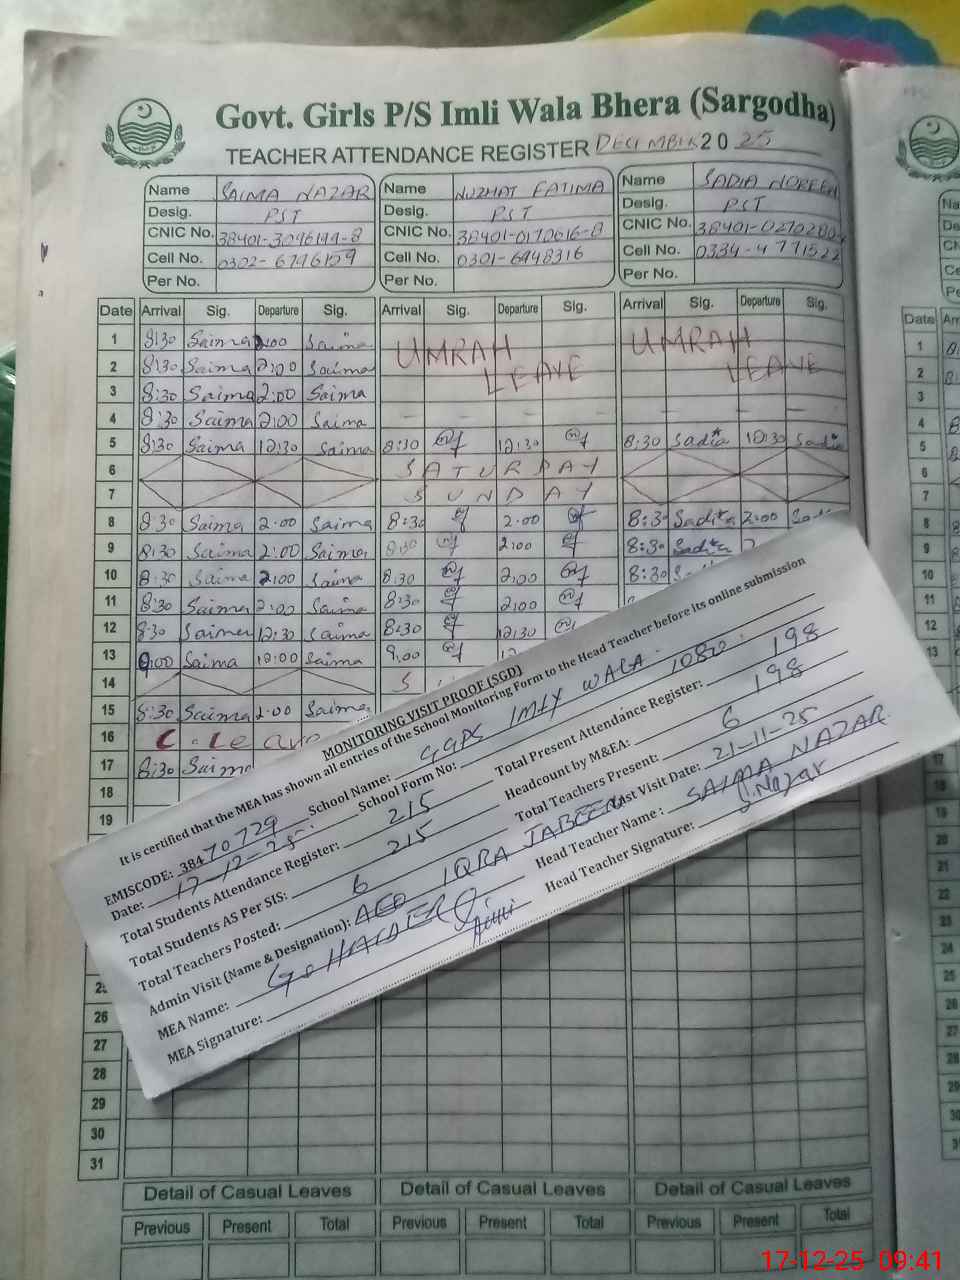 Govt. Girls P/S Imli Wala Bhera (Sargodha)
TEACHER ATTENDANCE REGISTER DECEMBER 2025
Name SAIMA NAZAR Name NUZHAT FATIMA Name SADIA NOREEN
Desig. PST Desig. PST Desig. PST
CNIC No. CNIC No. 38401-0170616-8 CNIC No.
Cell No. Cell No. 0301-6948316 Cell No. 0334-4771522
Per No. Per No. Per No.
Date Arrival Sig. Departure Sig. Arrival Sig. Departure Sig. Arrival Sig. Departure Sig.
1 8:30 Saima 2:00 Saima UMRAH UMRAH
2 8:30 Saima 2:00 Saima LEAVE LEAVE
3 8:30 Saima 2:00 Saima
4 8:30 Saima 2:00 Saima
5 8:30 Saima 12:30 Saima 8:30 12:30 8:30 Sadia 12:30 Sadia
6 SATURDAY
7 SUNDAY
8 8:30 Saima 2:00 Saima 8:30 2:00 8:30 Sadia 2:00
9 8:30 Saima 2:00 Saima 8:30 2:00 8:30 Sadia
10 8:30 Saima 2:00 Saima 8:30 2:00 8:30
11 8:30 Saima 2:00 Saima 8:30 2:00
12 8:30 Saima 12:30 Saima 8:30 12:30
13 9:00 Saima 12:00 Saima 9:00
14 S
15 8:30 Saima 2:00 Saima
16 C. Leave
17 8:30 Saima
18
19
MONITORING VISIT PROOF (SGD)
It is certified that the MEA has shown all entries of the School Monitoring Form to the Head Teacher before its online submission
EMISCODE: 38470729 School Name: GGPS IMLY WALA
Date: 17-12-25 School Form No: 1080
Total Students Attendance Register: 215 Total Present Attendance Register: 198
Total Students AS Per SIS: 215 Headcount by M&EA: 198
Total Teachers Posted: 6 Total Teachers Present: 6
Admin Visit (Name & Designation): AEO IQRA JABEEN Last Visit Date: 21-11-25
MEA Name: Head Teacher Name: SAIMA NAZAR
MEA Signature: Head Teacher Signature: S.Nazar
26
27
28
29
30
31
Detail of Casual Leaves Detail of Casual Leaves Detail of Casual Leaves
Previous Present Total Previous Present Total Previous Present Total
17-12-25 09:41